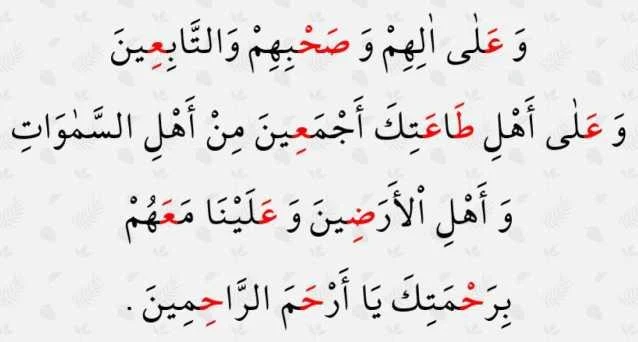 وَ عَلٰى اٰلِهِمْ وَ صَحْبِهِمْ وَالتَّابِعِينَ
وَ عَلٰى أَهْلِ طَاعَتِكَ أَجْمَعِينَ مِنْ أَهْلِ السَّمٰوَاتِ
وَ أَهْلِ اْلأَرَضِينَ وَ عَلَيْنَا مَعَهُمْ
بِرَحْمَتِكَ يَا أَرْحَمَ الرَّاحِمِينَ .